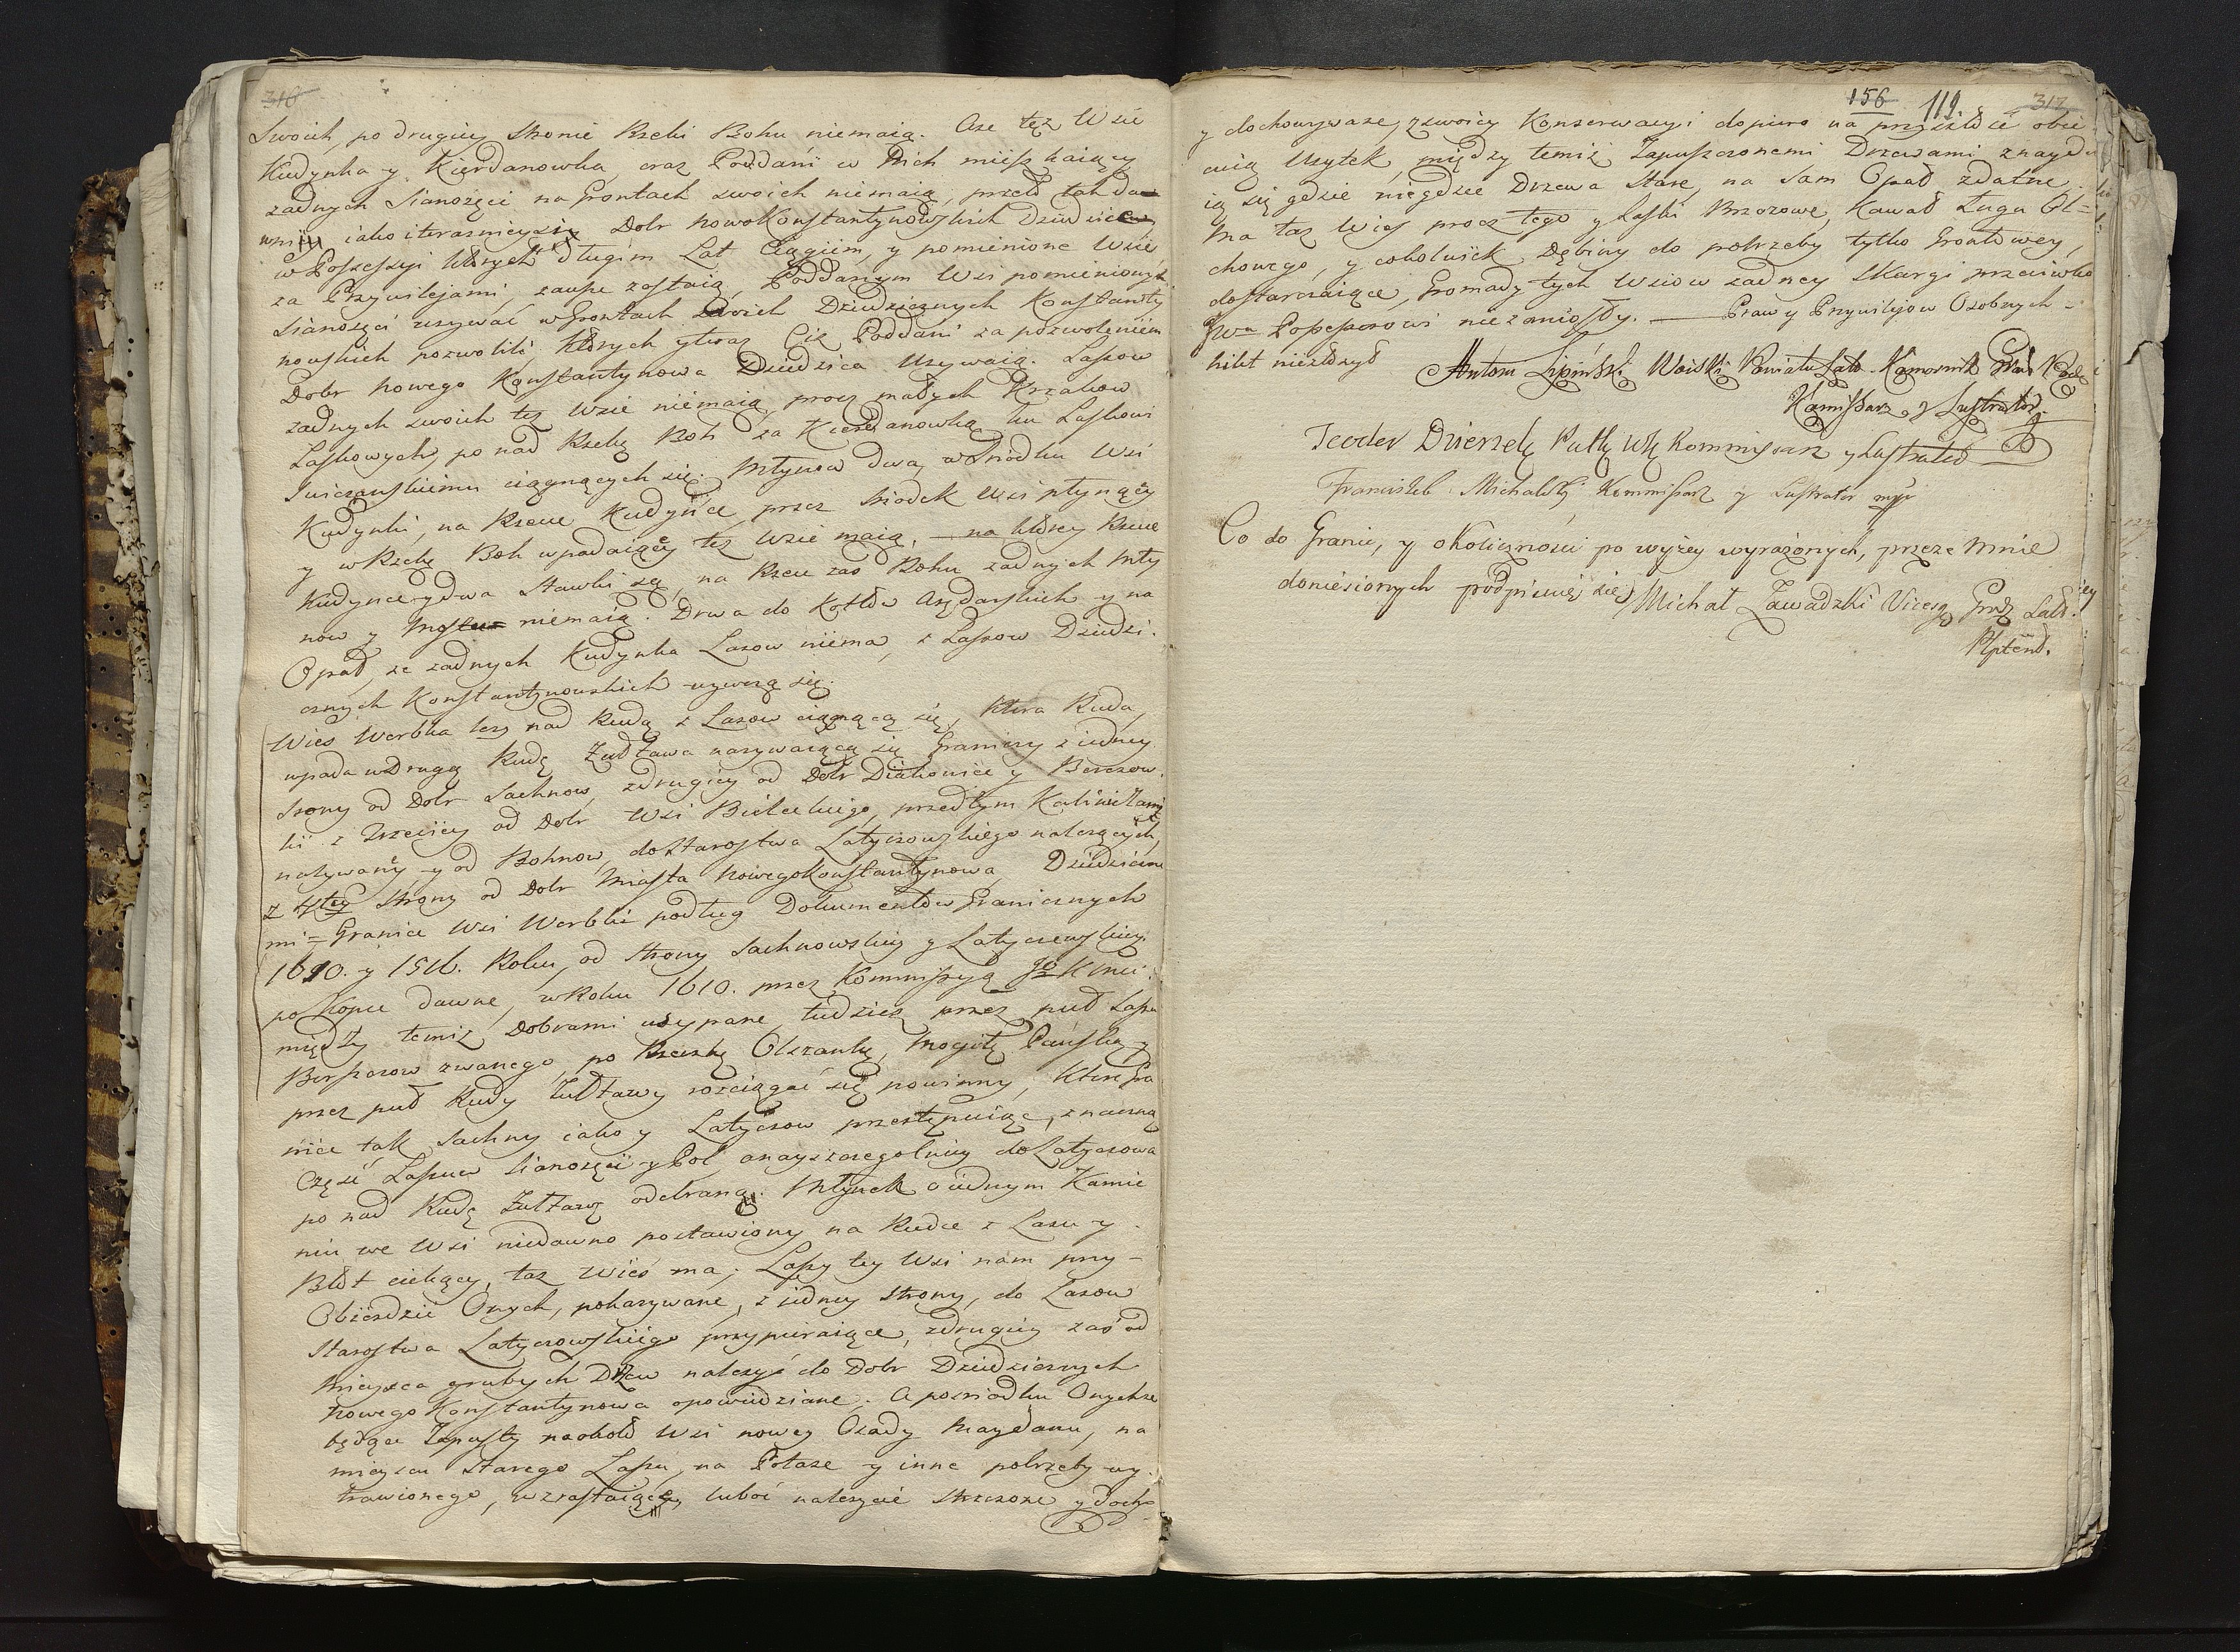 316
Swoich, po drugiey stronie Rzeki Bohu niemaią. Aże też Wsie
Kudynka y Kierdanowka, oraz Poddani w Nich mieszkaiący
żadnych Sianożęci na Grontach swoich niemaią, przeto tak da
wnieysi iako i teraznieysi Dobr NowoKonstantynowskich Dziedzice
w Possessyi ktorych długim Lat Ciągiem, y pomienione Wsie
za Przywilejami, zawsze zostaią, Poddanym Wsi pomienionych
Sianożęci używać w Grontach swoich Dziedzicznych Konstanty
nowskich pozwolili, ktorych y teraz Ciż Poddani za pozwoleniem
Dobr Nowego Konstantynowa Dziedzica Używaią. Lassow
żadnych swoich też Wsie niemaią, procz małych Krzakow
Laskowych, po nad Rzekę Boh za Kierdanowką ku Laskowi
ciągnących się. Młynow dwa, w Srodku Wsi
Kudynki, na Rzece Kudynce przez Srodek Wsi płynącey
y w Rzekę Boh wpadaiącey też Wsie maią, — na ktorey Rzece
Kudynce y dwa Stawki są, na Rzece zaś Bohu żadnych Mły
now y Mostu niemaią. Drwa do Kotłow Arędarskich y na
Opał, że żadnych Kudynka Lasow niema, z Lassow Dziedzi
cznych Konstantynowskich uzywozą się.
Wieś Werbka leży nad Rudą z Lasow ciągnącą się, ktora Ruda,
wpada w Drugą Rudę Żułtawa nazywaiącą się Graniczy z iedney
strony od Dobr Sachnow, z drugiey od Dobr Diakowiec y Berezow
ki z Trzeciey od Dobr Wsi Bieleckiego, przedtym Kaliniłami
nazywaney y od Bohnow, do Starostwa Latyczowskiego należących,
z 4tey strony od Dobr Miasta NowegoKonstantynowa Dziedziczne
mi = Granice Wsi Werbki podług Dokumentow Granicznych
1610. y 1516. Roku, od strony Sachnowskiey y Latyczewskiey
po Kopce dawne, w Roku 1610. przez Kommissyą JoKMci
między temiż Dobrami usypane, tudzież przez puł Lasu
Berszosow zwanego, po Rzeczkę Olszankę, Mogiłę Pańską y
przez puł Rudy Żułtawy rozciągać się powinny, ktore Gra
nice tak Sachny iako y Latyczow przestępuiąc, znaczną
Częsć Lassow Sianożęci y Pol, a nayszczegolniey do Latyczowa
po nad Rudę Żułtawę odebraną. Młynek o iednym Kamie
niu we Wsi niedawno postawiony na Rudce z Lasu y
Błot ciekącey, taż Wieś ma; Lasy tey Wsi nam przy
Obiezdzie Onych, pokazywane, z iedney strony, do Lasow
Starostwa Latyczowskiego przypieraiące, z drugiey zaś od
Mieysca grubych Drzew należyć do Dobr Dziedzicznych
Nowego Konstantynowa opowiedziane. A posrodku Onychże
będące Zapusty naokoło Wsi nowey Osady Maydanu, na
mieyscu Starego Lassu, na Potasze y inne potrzeby wy
trawionego, wzrastaiące, luboć należycie strzeżone y doch
156 119. 317
y dochowywane, z swoiey Konserwacyi dopiero na przyszłość obie
cuią Użytek, między temiż Zapuszczonemi Drzewami znaydu
ią się gdzie niegdzie Drzewa Stare, na sam Opał zdatne.
Ma taż Wieś procz tego y Laski Brzozowe, Kawał Ługu Ol=
chowego, y cokolwiek Dębiny do potrzeby tylko Grontowey,
dostarczaiące, Gromady tych Wsiow żadney Skargi przeciwko
Possessorowi niezaniosły. — Praw y Przywilejow Osobnych
nikt niezłożył
Antoni Lipiński Woiski Powiatu Laty. Komornik
Komissarz y Lustrator
Teodor Dzierzek Kommissarz y Lustrator
Franciszek Michalski Kommissarz y Lustrator mpr
Co do Granic, y okolicznosci po wyżey wyrażonych, przeze mnie
doniesionych podpisuię się Michał Zawadzki Vicesg Grodz Laty.
Plptend.